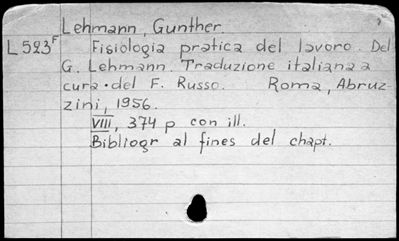 Lehmann, Gunther
L523F Fisiologia pratica del lavoro. Del
G. Lehmann. Traduzione italiana a
cura del F. Russo. Roma, Abruz-
zini, 1956.
VIII, 374 p con ill.
Bibliogr al fines del chapt.